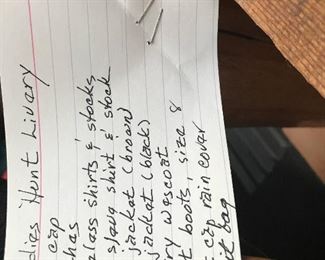 dies Hunt Livary
cap
has
lass shirts & stocks
slaug shirt & stock
jacket (brown)
jacket (black)
ry wascoat
t boots, size 8
cap rain cover
it bag